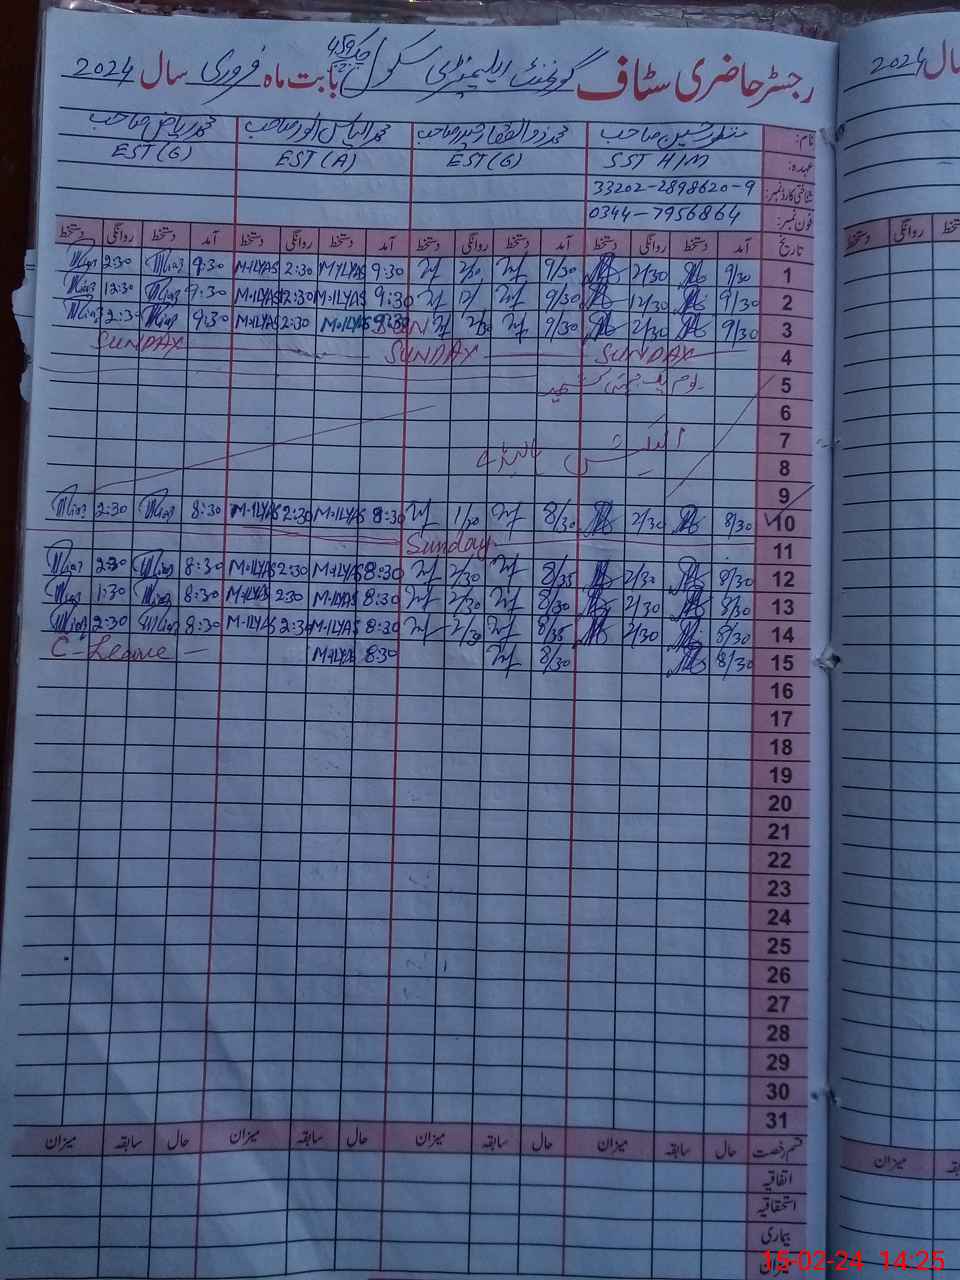 رجسٹر حاضری سٹاف گورنمنٹ ایلیمنٹری سکول چک 459 بابت ماہ فروری سال 2024
سال 2024
نام: منظور حسین صاحب محمد ذوالفقار حیدر صاحب محمد الیاس انور صاحب محمد ریاض صاحب
عہدہ: SST HIM EST (G) EST (A) EST (G)
شناختی کارڈ نمبر: 33202-2898620-9
فون نمبر: 0344-7956864
تاریخ آمد دستخط روانگی دستخط آمد دستخط روانگی دستخط آمد دستخط روانگی دستخط آمد دستخط روانگی دستخط
1 9/30 2/30 9/30 9:30 M-ILYAS 2:30 M-ILYAS 9:30 2:30
2 9/30 12/30 9/30 12/ 9:30 M-ILYAS 12:30 M-ILYAS 9:30 12:30
3 9/30 2/30 9/30 2/30 9:30 M-ILYAS 2:30 M-ILYAS 9:30 2:30
4 SUNDAY SUNDAY SUNDAY
5 یوم یک جہتی کشمیر
6
7
8
9
10 8/30 2/30 8/30 1/30 8:30 M-ILYAS 2:30 M-ILYAS 8:30 2:30
11 Sunday
12 8/30 2/30 8/35 2/30 8:30 M-ILYAS 2:30 M-ILYAS 8:30 2:30
13 8/30 2/30 8/30 2/30 8:30 M-ILYAS 2:30 M-ILYAS 8:30 1:30
14 8/30 2/30 8/35 2/30 8:30 M-ILYAS 2:30 M-ILYAS 8:30 2:30
15 8/30 8/30 8:30 M-ILYAS C-Leave
16
17
18
19
20
21
22
23
24
25
26
27
28
29
30
31
قسم رخصت حال سابقہ میزان حال سابقہ میزان حال سابقہ میزان حال سابقہ میزان
میزان
اتفاقیہ
استحقاقیہ
بیماری
15-02-24 14:25